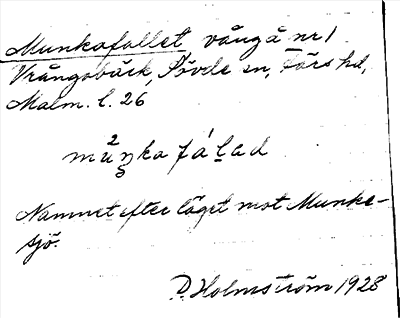 Munkafallet, vång å nr 1
Vrångabäck, Sövde sn, Färs hd,
Malm. l. 26
mu²ŋka fálad
Namnet efter läget mot Munke-
sjö.
D. Holmström 1928